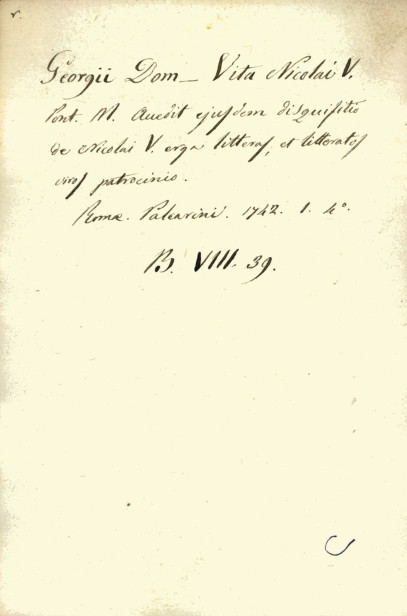 r.
Georgii Dom_ Vita Nicolai V.
Pont. M. Accedit ejuſdem diſquiſitio
de Nicolai V. erga litteraſ, et litteratoſ
viroſ patrocinio.
Romæ. Palearini. 1742. 1. 4°.
B. VIII. 39.